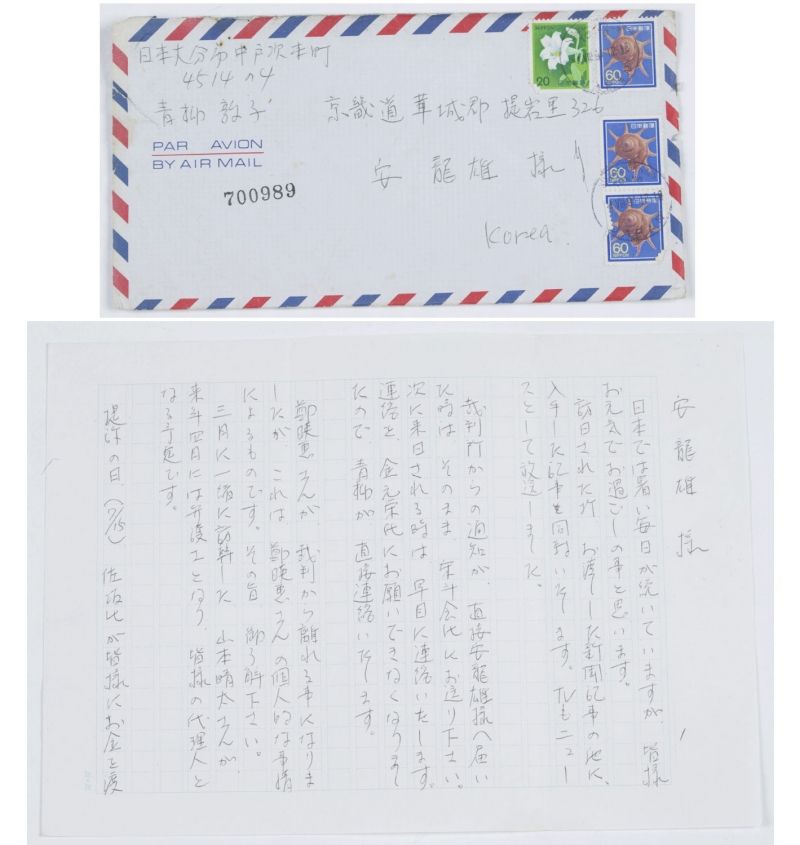 日本大分市中戸次本町
4514の4
青柳敦子
PAR AVION
BY AIR MAIL
700989
京畿道華城郡提岩里326
安龍雄様
Korea.
20
60
日本郵便
60
NIPPON
日本郵便
60
NIPPON
安龍雄様
日本では暑い毎日が続いていますが、皆様
お元気でお過ごしの事と思います。
訪日された折、お渡しした新聞記事の他に、
入手した記事を同封いたします。TVもニュー
スとして放送しました。
裁判所からの通知が、直接安龍雄様へ届い
た時は、そのまま、宋斗会氏にお送り下さい。
次に来日される時は、早目に連絡いたします。
連絡を、金元栄氏にお願いできなくなりまし
たので、青柳が、直接連絡いたします。
鄭暎惠さんが、裁判から離れる事になりま
したが、これは、鄭暎惠さんの個人的な事情
によるものです。その旨、御了解下さい。
三月に一緒に訪韓した山本晴太さんが、
来年四月には弁護士となり、皆様の代理人と
なる予定です。
提訴の日(7/15)佐
氏が皆様にお金を渡